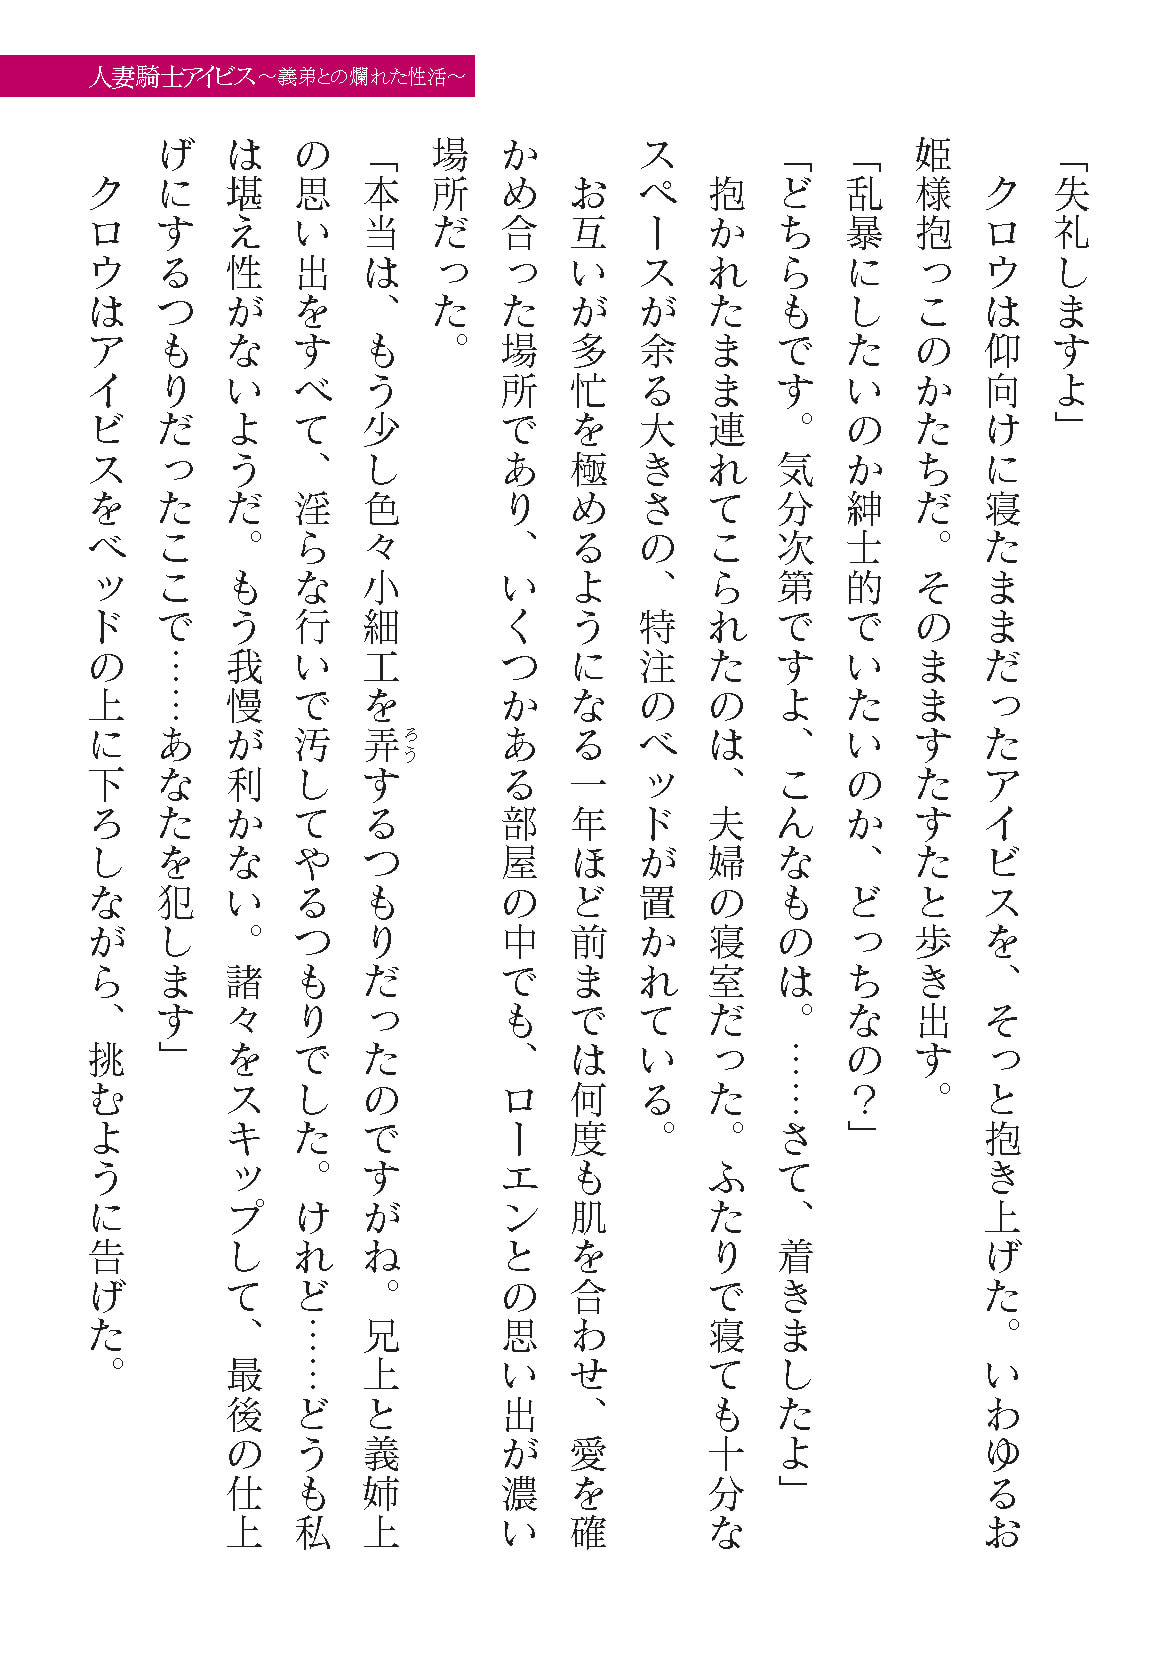 人妻騎士アイビス～義弟との爛れた性活～
「失礼しますよ」
　クロウは仰向けに寝たままだったアイビスを、そっと抱き上げた。いわゆるお
姫様抱っこのかたちだ。そのまますたすたと歩き出す。
「乱暴にしたいのか紳士的でいたいのか、どっちなの？」
「どちらもです。気分次第ですよ、こんなものは。……さて、着きましたよ」
　抱かれたまま連れてこられたのは、夫婦の寝室だった。ふたりで寝ても十分な
スペースが余る大きさの、特注のベッドが置かれている。
　お互いが多忙を極めるようになる一年ほど前までは何度も肌を合わせ、愛を確
かめ合った場所であり、いくつかある部屋の中でも、ローエンとの思い出が濃い
場所だった。
「本当は、もう少し色々小細工を弄ろうするつもりだったのですがね。兄上と義姉上
の思い出をすべて、淫らな行いで汚してやるつもりでした。けれど……どうも私
は堪え性がないようだ。もう我慢が利かない。諸々をスキップして、最後の仕上
げにするつもりだったここで……あなたを犯します」
　クロウはアイビスをベッドの上に下ろしながら、挑むように告げた。